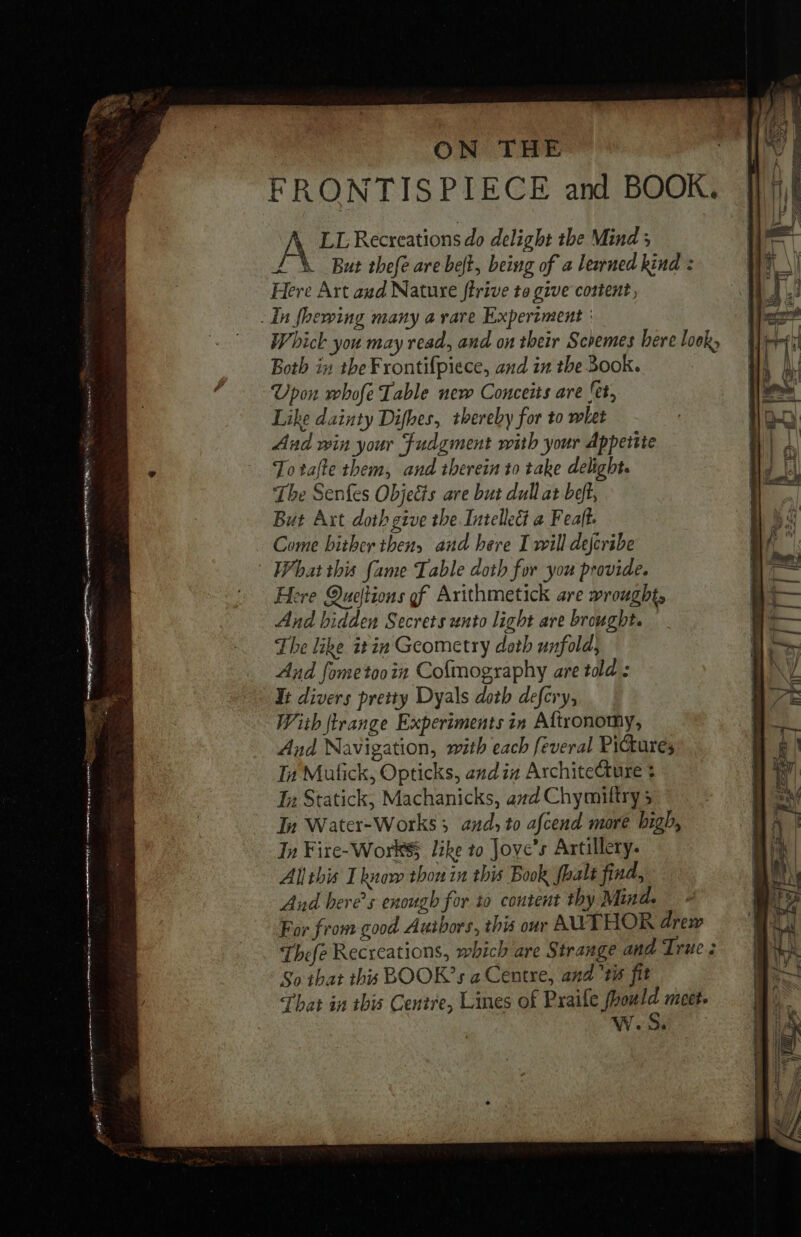 ON THE
FRONTISPIECE and BOOK.
ALL Recreations do delight the Mind;
But theſe are beſt, being of a learned kind:
Here Art and Nature ſtrive to give content,
In ſhewing many a rare Experiment:
Which you may read, and on their Schemes here look,
Both in the Frontiſpiece, and in the Book.
Upon whoſe Table new Conceits are ſet,
Like dainty Diſhes, thereby for to whet
And win your Judgment with your Appetite
To taſte them, and therein to take delight.
The Senſes Objects are but dull at beſt,
But Art doth give the Intellect a Feaſt.
Come hither then, and here I will deſcribe
What this ſame Table doth for you provide.
Here Queſtions of Arithmetick are wrought,
And hidden Secrets unto light are brought.
The like it in Geometry doth unfold,
And ſome too in Coſmography are told:
It divers pretty Dyals doth deſcry,
With ſtrange Experiments in Aſtronomy,
And Navigation, with each ſeveral Pictures
In Muſick, Opticks, and in Architecture:
In Statick, Machanicks, and Chymiſtry;
In Water-Works; and, to aſcend more high,
In Fire-Works; like to Jove's Artillery.
All this I know thou in this Book ſhalt find,
And here's enough for to content thy Mind.
For from good Authors, this our AUTHOR drew
Theſe Recreations, which are Strange and True:
So that this BOOK's a Centre, and 'tis fit
That in this Centre, Lines of Praiſe ſhould meet.
W. S.